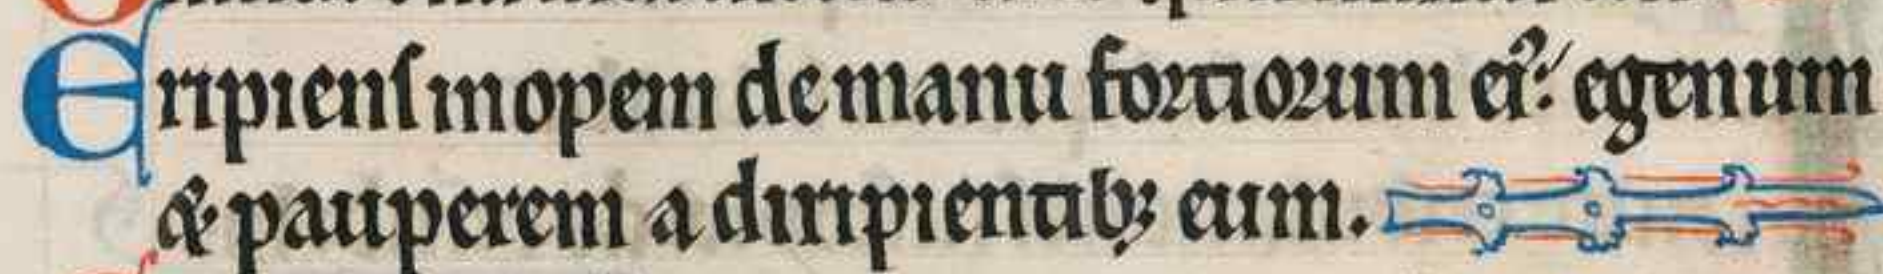 Eripienſ inopem de manu fortiorum ei᷒: egenum
& pauperem a diripientibꝫ eum.